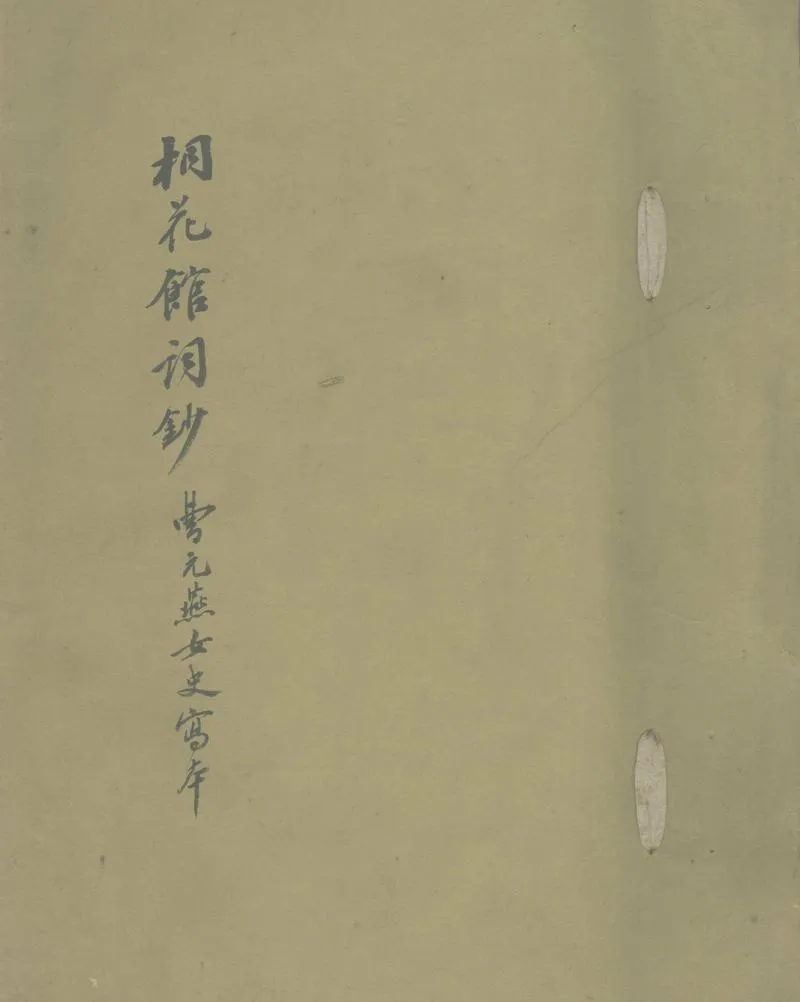 桐花館词鈔 曹元燕女史寫本